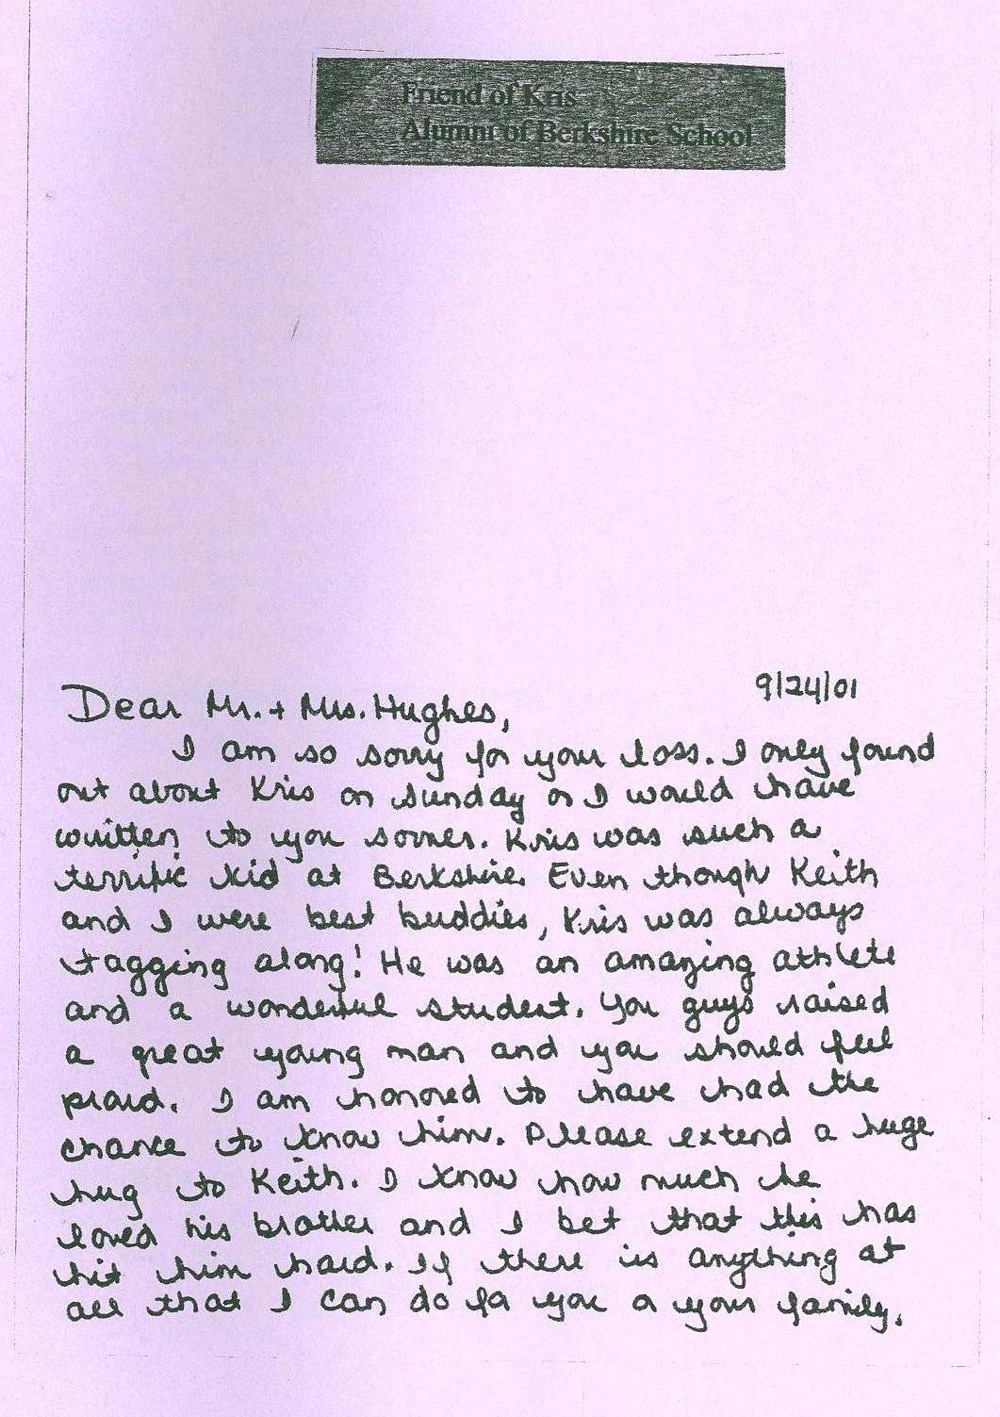 Friend of Kris
Alumni of Berkshire School
9/24/01
Dear Mr. + Mrs. Hughes,
I am so sorry for your loss. I only found
out about Kris on Sunday or I would have
written to you sooner. Kris was such a
terrific kid at Berkshire. Even though Keith
and I were best buddies, Kris was always
tagging along! He was an amazing athlete
and a wonderful student. You guys raised
a great young man and you should feel
proud. I am honored to have had the
chance to know him. Please extend a huge
hug to Keith. I know how much he
loved his brother and I bet that this has
hit him hard. If there is anything at
all that I can do for you or your family,